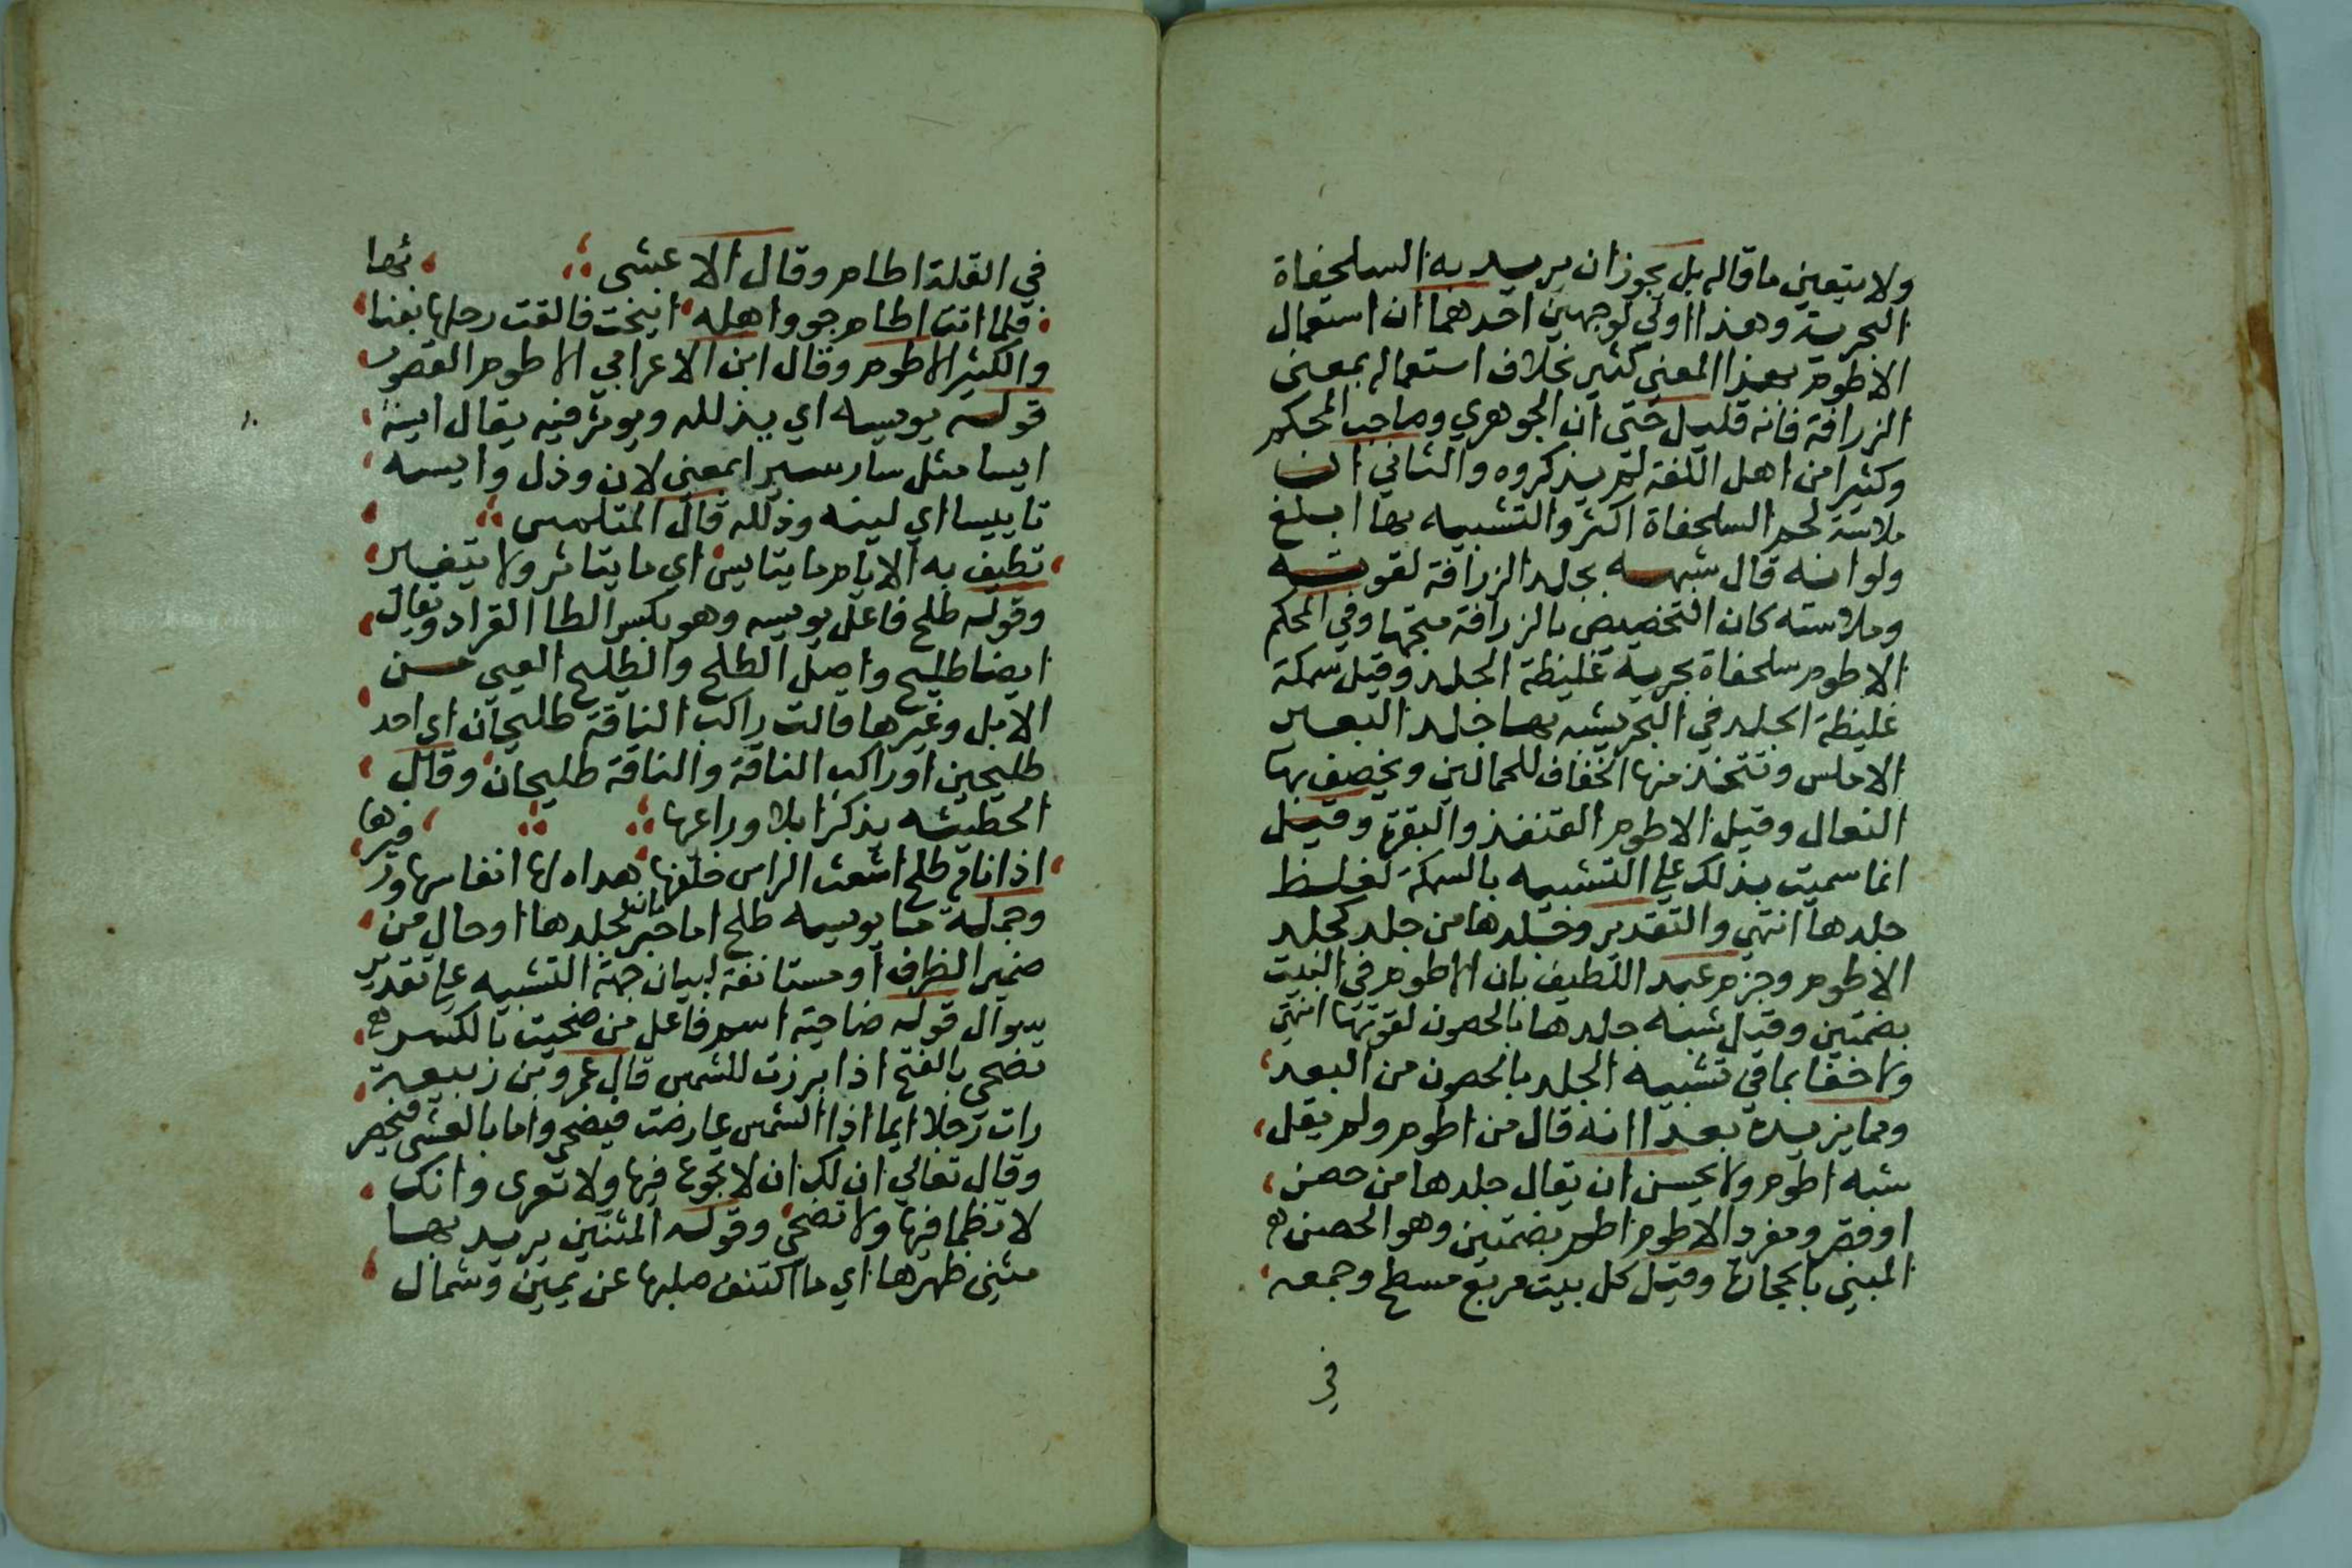 ولا يتعين ما قاله بل يجوز ان يريد به السلحفاة
البحرية وهذا اولى لوجهين احدهما ان استعمال
الاطوم بهذا المعنى كثير بخلاف استعماله بمعنى
الزرافة فانه قليل حتى ان الجوهري وصاحب المحكم
وكثيرا من اهل اللغة لم يذكروه والثاني ان
ملاسة لحم السلحفاة اكثر والتشبيه بها ابلغ
ولو انه قال شبهه بجلد الزرافة لقوته
وملاسته كان التخصيص بالزرافة متجها وفي المحكم
الاطوم سلحفاة بحرية غليظة الجلد وقيل سمكة
غليظة الجلد في البحر يشبه بها جلد البعير
الاملس وتتخذ منها الخفاف للجمالين ويخصف بها
النعال وقيل الاطوم القنفذ والبقرة وقيل
انما سميت بذلك على التشبيه بالسمكة لغلظ
جلدها انتهى والتقدير وجلدها من جلد كجلد
الاطوم وجزم عبد اللطيف بان الاطوم في البيت
بضمتين وقيل شبه جلدها بالحصون لقوتها انتهى
ولا خفا بما في تشبيه الجلد بالحصون من البعد
ومما يزيده بعدا انه قال من اطوم ولم يقل
شبه اطوم ولا يحسن ان يقال جلدها من حصن
او قصر ومفرد الاطوم اطم بضمتين وهو الحصن
المبني بالحجارة وقيل كل بيت مربع مسطح وجمعه
في
في القلة اطام وقال الاعشى
فلما اتت اطام جو واهله انيخت فالقت رحلها بفنا ئها
والكثير الاطوم وقال ابن الاعرابي الاطوم القصور
قوله يويسه اي يذلله ويوثر فيه يقال ايس
ايسا مثل سار سيرا بمعنى لان وذل وايسه
تاييسا اي لينه وذلله قال المتلمس
تطيف به الايام ما يتايس اي ما يتاثر ولا يتغير
وقوله طلح فاعل يويسه وهو بكسر الطا القراد ويقال
ايضا طليح واصل الطلح والطليح المعيى من
الابل وغيرها قالت راكب الناقة طليحان اي احد
طليحين او راكب الناقة والناقة طليحان وقال
الحطيئه يذكر ابلا وراعيها
اذا نام طلح اشعث الراس خلفها هداه لها انفاسها وزفيرها
وجملة ما يويسه طلح اما خبر ثان لجلدها او حال من
ضمير الظرف او مستانفة لبيان جهة التشبيه على تقدير
سوال قوله ضاحية اسم فاعل من ضحيت بالكسر
تضحى بالفتح اذا برزت للشمس قال عمرو بن ربيعة
رات رجلا ايما اذا الشمس عارضت فيضحى واما بالعشى فيخصر
وقال تعالى ان لك ان لا تجوع فيها ولا تعرى وانك
لا تظما فيها ولا تضحى وقوله المتنين يريد بها
متني ظهرها اي ما اكتنف صلبها عن يمين وشمال